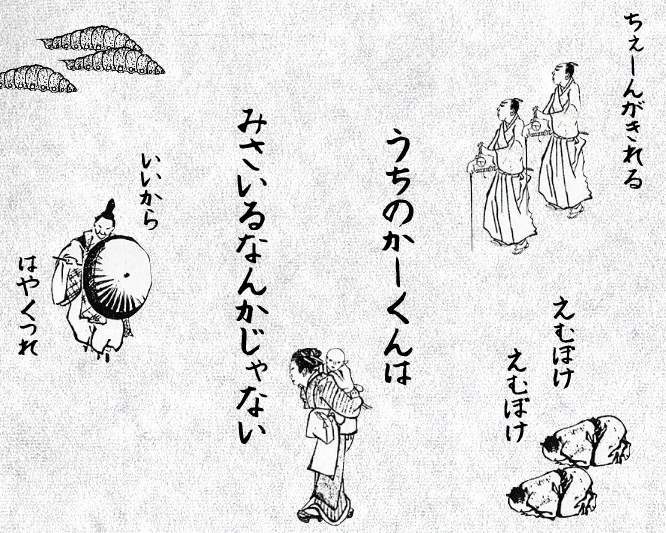 ちぇーんがきれる
えむぼけ
えむぼけ
うちのかーくんは
みさいるなんかじゃない
いいから
はやくつれ